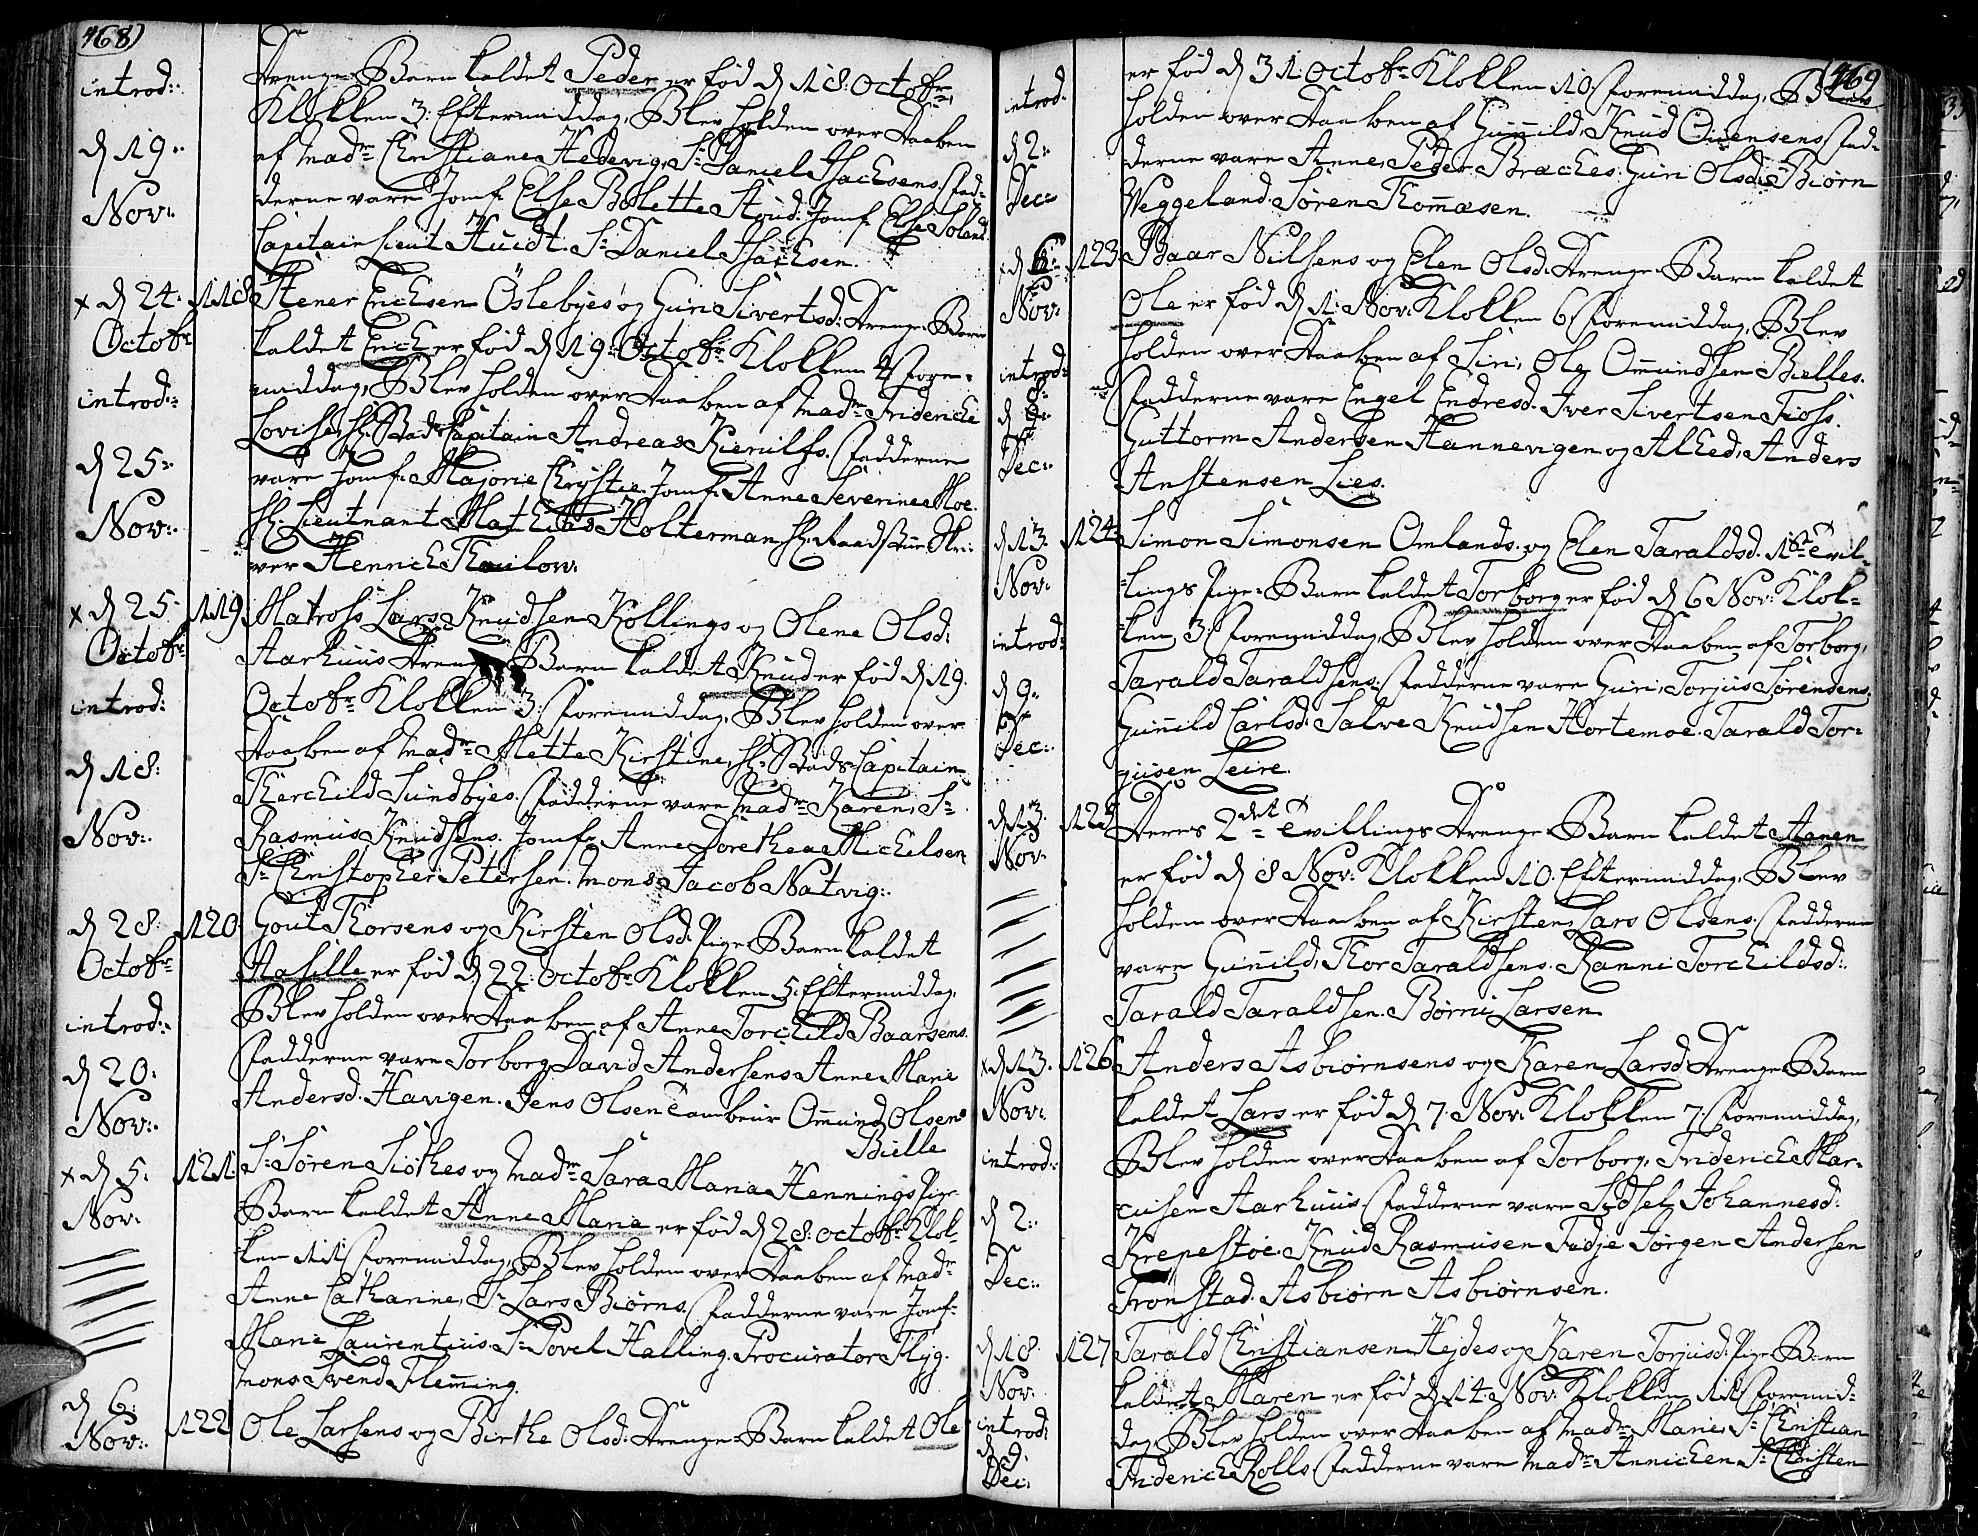 468)
introd:
d 19.
Nov:
Drenge-Barn kaldet Peder er fød d 18. Octobr
Klokken 3. Eftermiddag, Blev holden over Daaben
af Madme Christiane Hedevig, Sr Daniel Isachsens. Fad-
derne vare Jomf. Else Bolette Stoud. Jomf. Else Soland.
Capitain Lieut Huidt. Sr Daniel Isachsen.
x d 24. 118.
Octobr
introd:
d 25.
Nov:
Stener Erichsen Oslebyes og Guri Sivertsd. Drenge-Barn
kaldet Erich er fød d 19. Octobr Klokken 4 Form-
middag, Blev holden over Daaben af Madme Frideriche
Lovise, Hr Stads Capitain Andreas Kierulfs. Fadderne
vare Jomf. Majorie Chrystie. Jomf. Anne Severine Moe.
Hr Lieutnant Mathias Holterman, Hr Raadstue Skri-
ver Henrich Thaulow.
x d 25. 119.
Octobr
introd:
d 18.
Nov:
Matross Lars Knudsen Kollings og Olene Olsd:
Aarhuus Drenge-Barn kaldet Knud er fød d 19.
Octobr Klokken 3. Formiddag, Blev holden over
Daaben af Madme Mette Kirstine, Hr Stads-Capitain
Therchild Sundbyes. Fadderne vare Madme Karen, Sr
Rasmus Knudsens. Jomfr Anne Dorethea Michelsen
Sr Christopher Petersen. Mons Jacob Natvig:
d 28. 120.
Octobr
introd:
d 20.
Nov:
Gout Thorsens og Kirsten Olsd. Pige-Barn kaldet
Aasille er fød d 22. Octobr Klokken 5. Eftermiddag,
Blev holden over Daaben af Anne Torchild Baarsens.
Fadderne vare Torborg David Andersens Anne Marie
Andersd. Havigen. Jens Olsen Tambeur Omund Olsen
Bielle
x d 5. 121.
Nov.
Sr Søren Siøthes og Madme Sara Maria Hennings Pige-
Barn kaldet Anne Maria er fød d 28. Octobr Klok-
ken 11. Formiddag, Blev holden over Daaben af Madme
Anne Catharine, Sr Lars Biørns. Fadderne vare Jomfr
Marie Laurentius. Sr Povel Halling. Procurator Flyg.
Mons Svend Fleming.
d 6. 122
Nov:
Ole Larsens og Birthe Olsd. Drenge-Barn kaldet Ole
469
introd:
d 2.
Dec:
er fød d 31. Octobr Klokken 10. Formiddag, Blev
holden over Daaben af Gunild, Knud Ouensens. Fad-
derne vare Anne, Peder Braches. Guri Olsd. Biørn
Veggeland. Søren Thomæsen.
x d 6. 123
Nov:
introd:
d 8.
Dec:
Baar Nilsens og Elen Olsd. Drenge-Barn kaldet
Ole er fød d 1. Nov. Klokken 6. Formiddag, Blev
holden over Daaben af Siri, Ole Omundsen Bielles.
Fadderne vare Engel Endresd. Iver Sivertsen Fioss.
Guttorm Andersen Hannevigen og Alhed, Anders
Anstensen Lies.
d 13. 124.
Nov:
introd:
d 9.
Dec:
Simon Simonsen Omlands. og Elen Taraldsd. 1ste Tvil-
lings Pige-Barn kaldet Torborg er fød d 6 Nov: Klok-
ken 3. Formiddag, Blev holden over Daaben af Torborg,
Tarald Taraldsens. Fadderne vare Guri, Torjus Sørensens.
Gunild Carlsd. Salve Knudsen Hortemoe. Tarald Tor-
jusen Leire.
d 13. 125
Nov:
Deres 2det Tvillings Drenge-Barn kaldet Aanen
er fød d 8 Nov. Klokken 10. Eftermiddag, Blev
holden over Daaben af Kirsten, Lars Olsens. Fadderne
vare Gunild, Thor Taraldsens. Ranni Torchildsd.
Tarald Taraldsen. Børni Larsen.
x d 13. 126
Nov:
introd:
d 2.
Dec:
Anders Asbiørnsens og Karen Larsd. Drenge-Barn
kaldet Lars er fød d 7. Nov: Klokken 7. Formiddag,
Blev holden over Daaben af Torborg, Friderich Mar-
cusen Aarhuus. Fadderne vare Sidsel Johannesd.
Krepestøe. Knud Rasmusen Fidje Jørgen Andersen
Tronstad. Asbiørn Asbiørnsen.
d 18. 127
Nov:
introd:
d 9.
Dec:
Tarald Christiansen Hejdes og Karen Torjusd. Pige-Barn
kaldet Maren er fød d 14. Nov. Klokken 11. Formid-
dag, Blev holden over Daaben af Madme Marie, Sr Christian
Friderich Rolls. Fadderne vare Madme Annichen Sr Christen